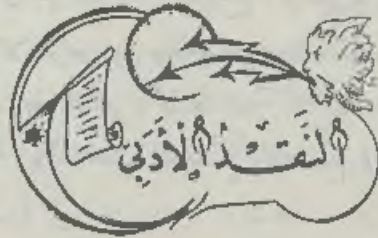 النَّقْدُ الأَدَبِي